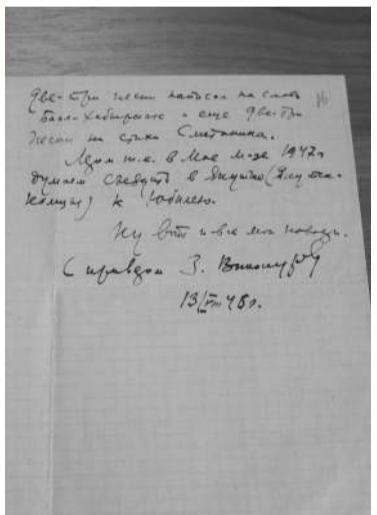 две-три песни написал на слова
Баал-Хабырыыс и еще две-три
песни на стихи Сметанина.
т.е. в Мае м-це 1947г
думаем съездить в Якутию (Якутск-
) к Юбилею.
Ну вот и все мои новости.
С приветом З. Винокур
13/VIII 46г.